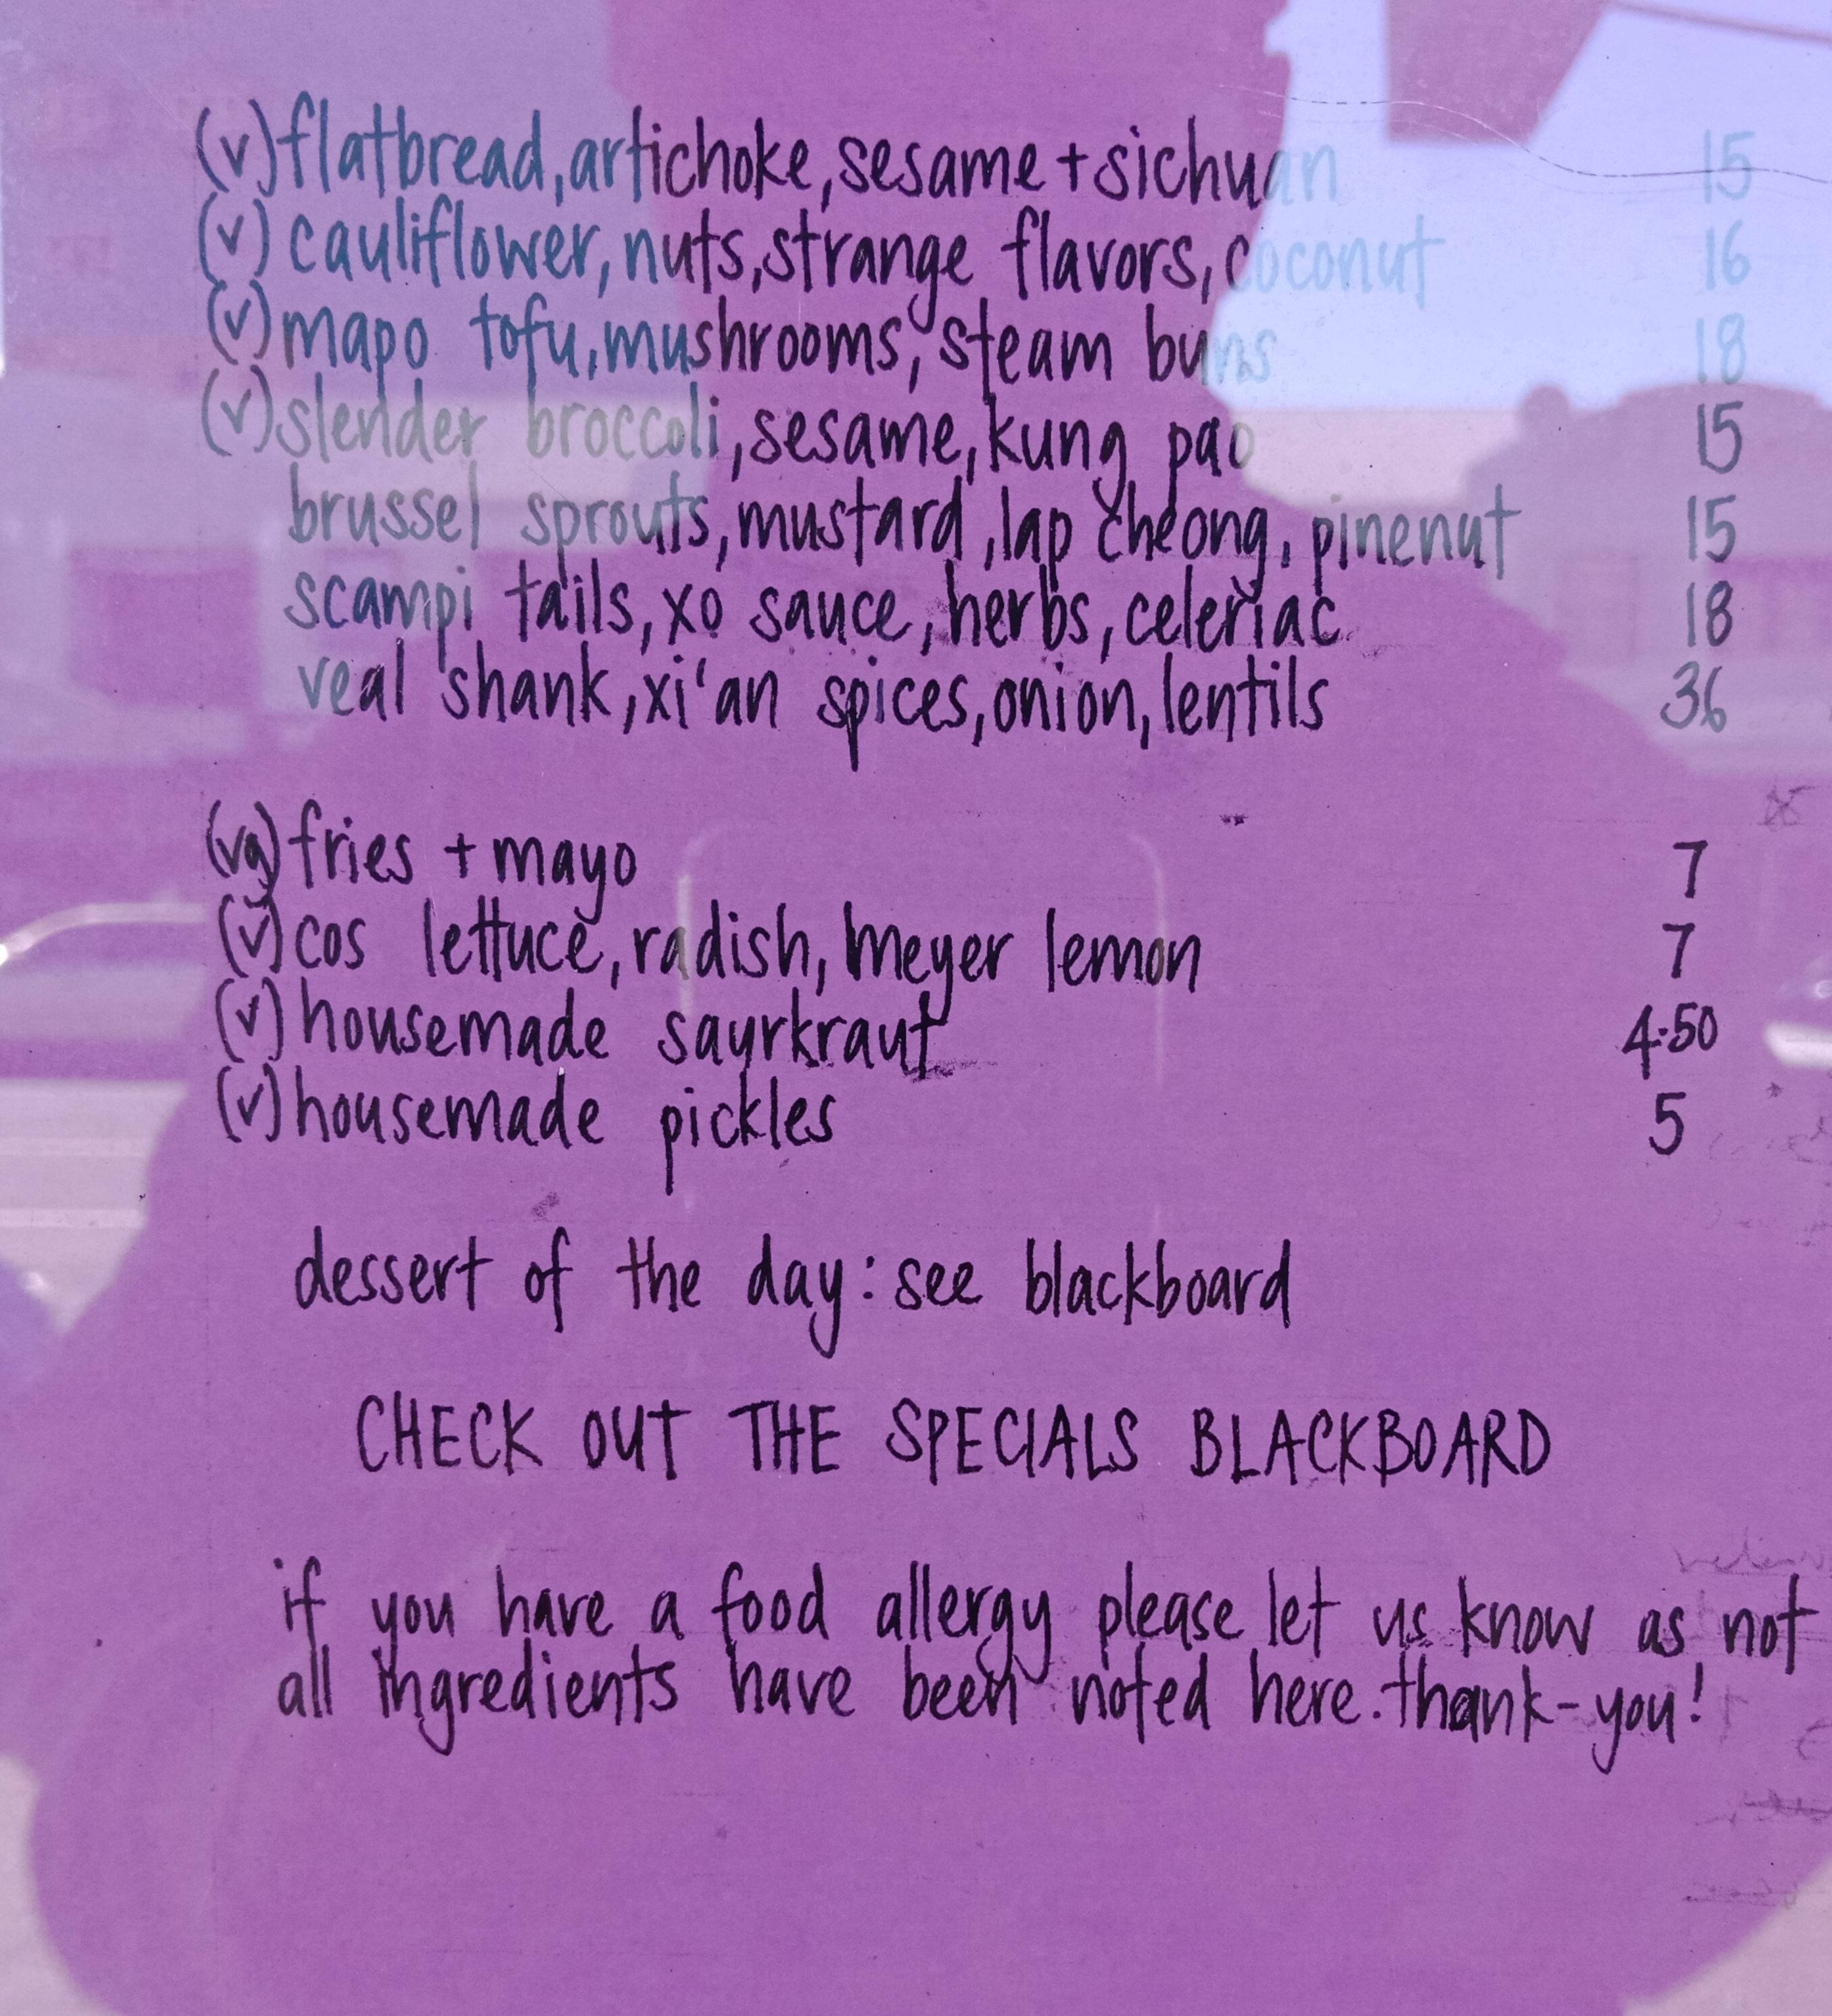 (v) flatbread, artichoke, sesame + sichuan 15
(v) cauliflower, nuts, strange flavors, coconut 16
(v) mapo tofu, mushrooms, steam buns 18
(v) slender broccoli, sesame, kung pao 15
brussel sprouts, mustard, lap cheong, pinenut 15
scampi tails, xo sauce, herbs, celeriac 18
veal shank, xi'an spices, onion, lentils 36
(vg) fries + mayo 7
(v) cos lettuce, radish, meyer lemon 7
(v) housemade saurkraut 4.50
(v) housemade pickles 5
dessert of the day: see blackboard
CHECK OUT THE SPECIALS BLACKBOARD
if you have a food allergy please let us know as not
all ingredients have been noted here. thank-you!